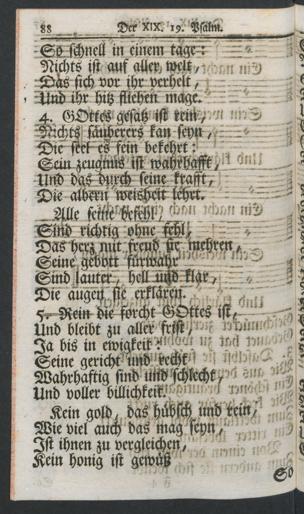 88 Der XIX. 19. Psalm.
So schnell in einem tage:
Nichts ist auf aller welt,
Das sich vor ihr verhelt,
Und ihr hitz fliehen mage.
4. GOttes gesatz ist rein,
Nichts säuberers kan seyn,
Die seel es sein bekehrt:
Sein zeugnus ist wahrhafft,
Und das durch seine krafft,
Die albern weisheit lehrt.
Alle seine befehl
Sind richtig ohne fehl,
Das herz mit freud sie mehren,
Seine gebott fürwahr
Sind lauter, hell und klar,
Die augen sie erklären.
5. Rein die forcht GOttes ist,
Und bleibt zu aller frist
Ja bis in ewigkeit:
Seine gericht und recht
Wahrhaftig sind und schlecht,
Und voller billichkeit.
Kein gold, das hübsch und rein,
Wie viel auch das mag seyn,
Ist ihnen zu vergleichen,
Kein honig ist gewüß
So